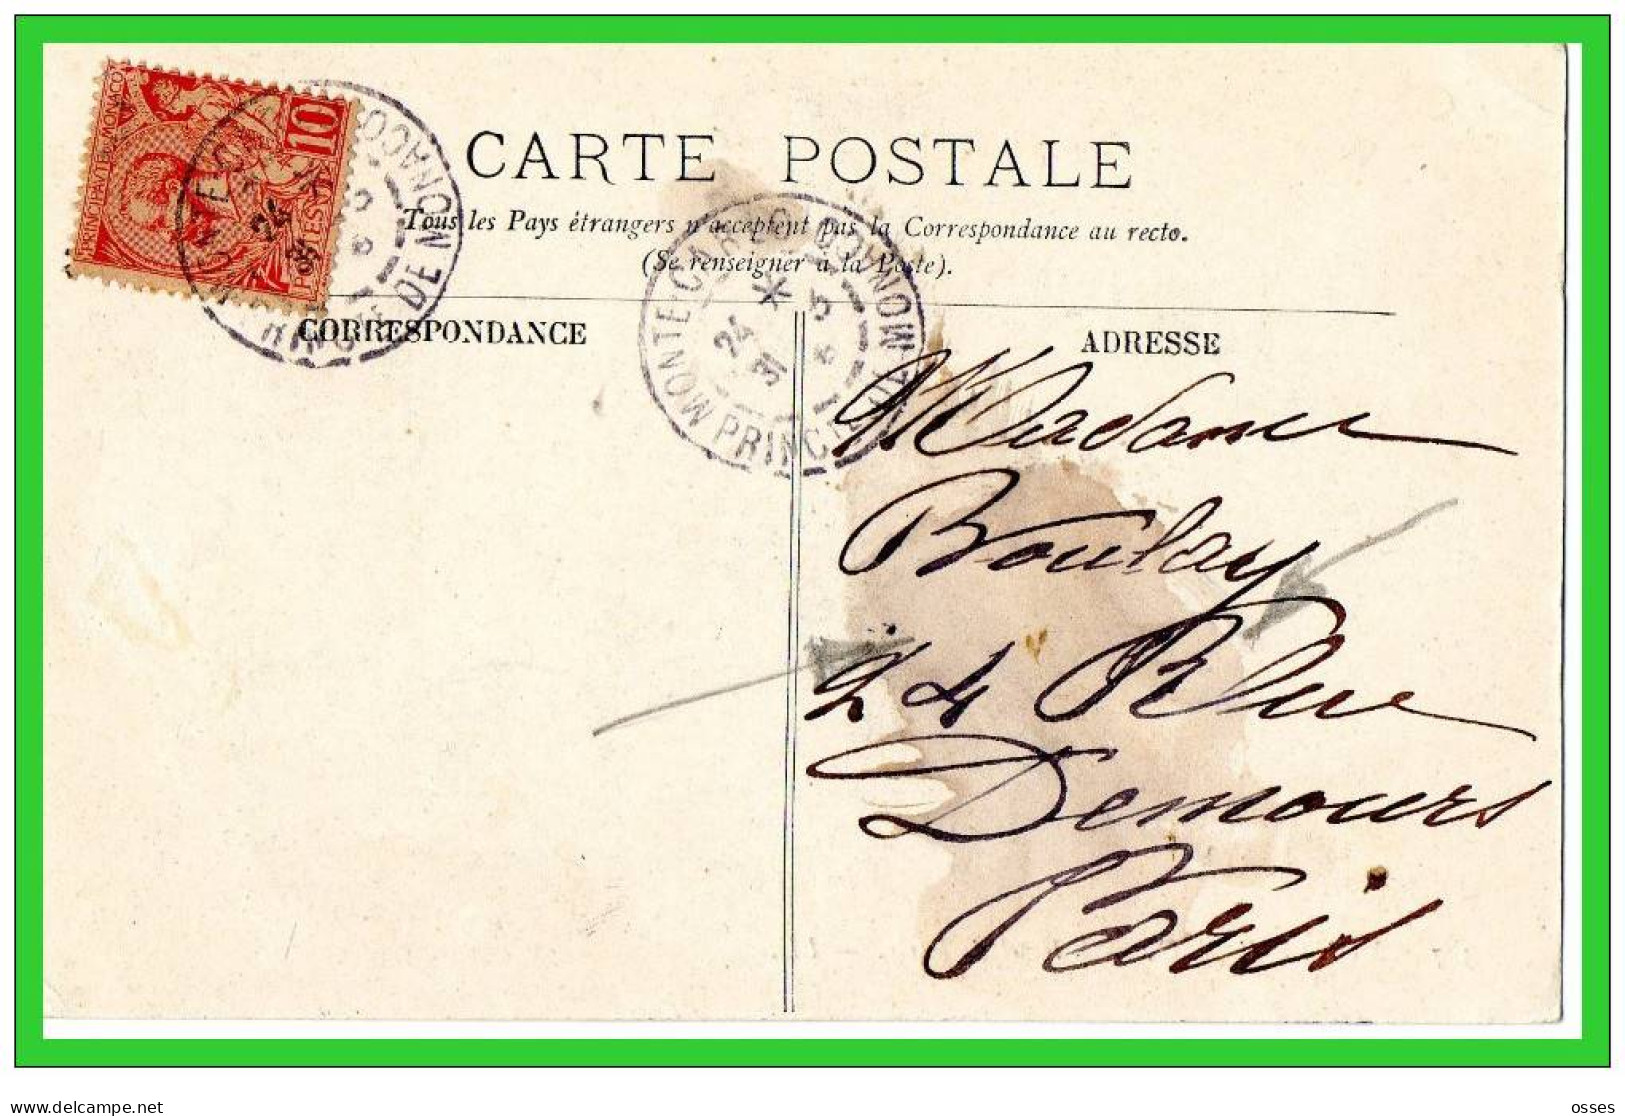 PRINCIPAUTÉ DE MONACO
10
POSTES
MONTE-CARLO
PRINCIP. DE MONACO
24
CARTE POSTALE
Tous les Pays étrangers n'acceptent pas la Correspondance au recto.
(Se renseigner à la Poste).
MONTE-CARLO
PRINCIP. DE MONACO
24
31
CORRESPONDANCE
ADRESSE
Madame
Boulay
24 Rue
Demours
Paris
delcampe.net
osses